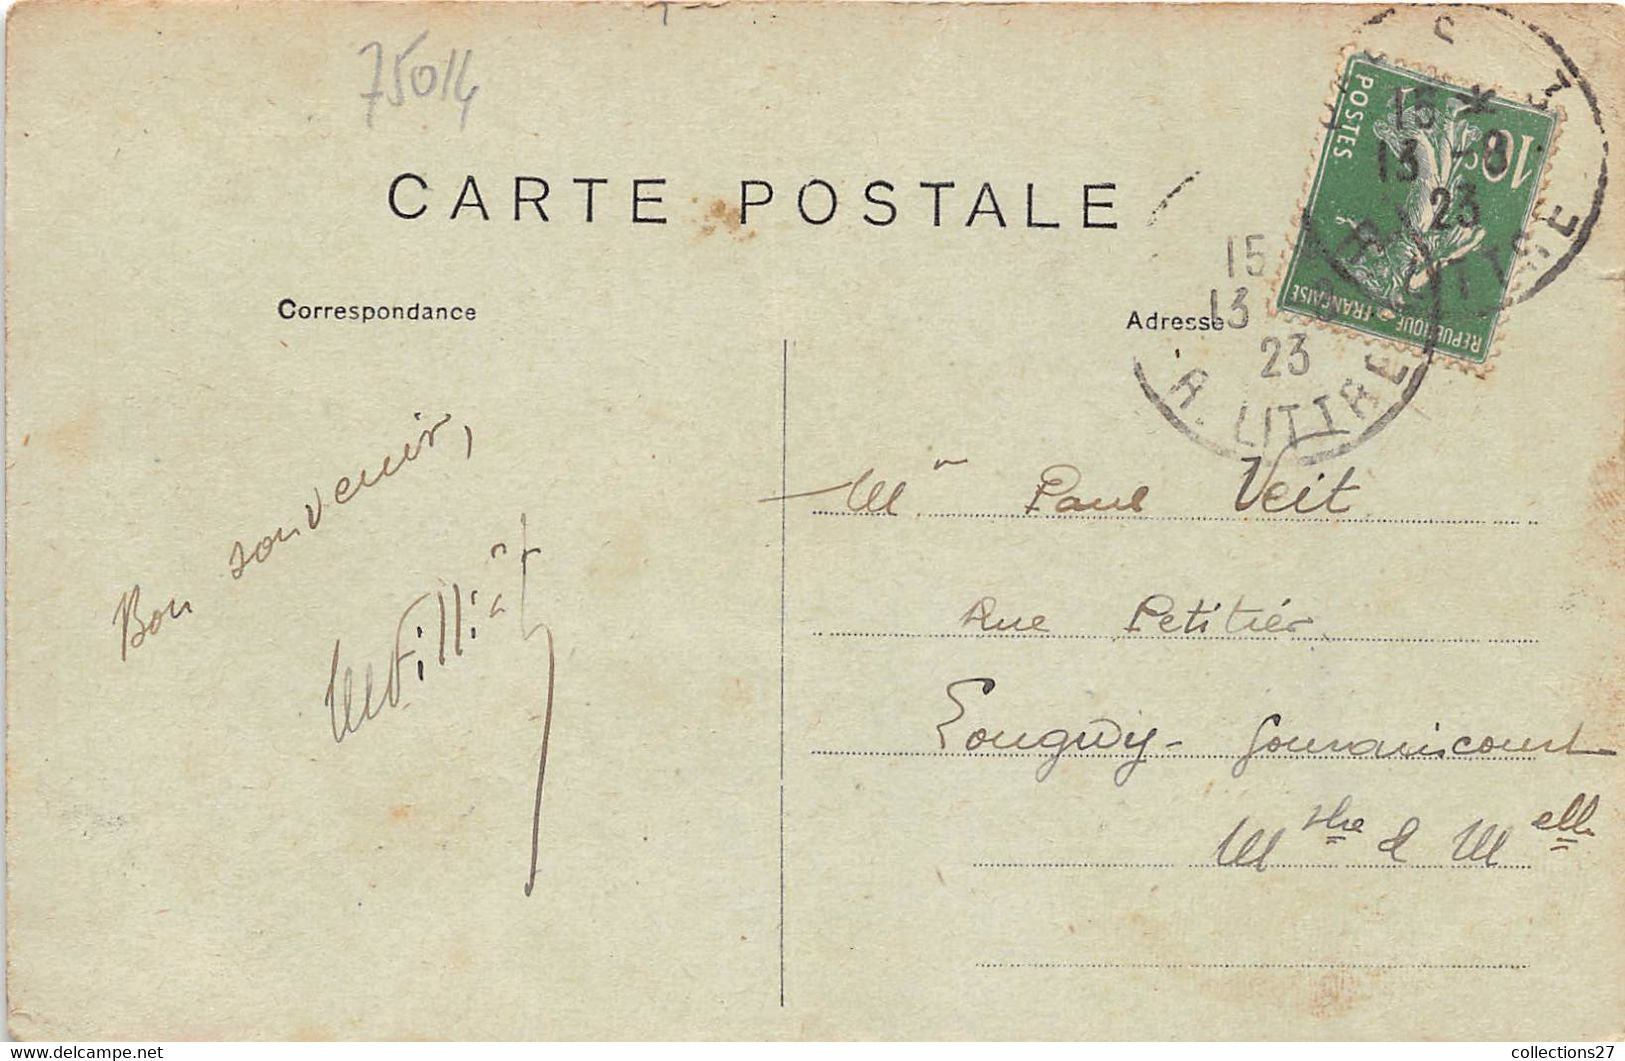 75014
CARTE POSTALE
Correspondance
Adresse
POSTES
10c
REPUBLIQUE FRANÇAISE
15 *
13 -8
23
R. LITTRE
15
13
23
R. LITTRE
Bon souvenir,
Mr Paul Veit
Rue Petitier
Longwy - Gouraincourt
Mthe & Melle
collections27